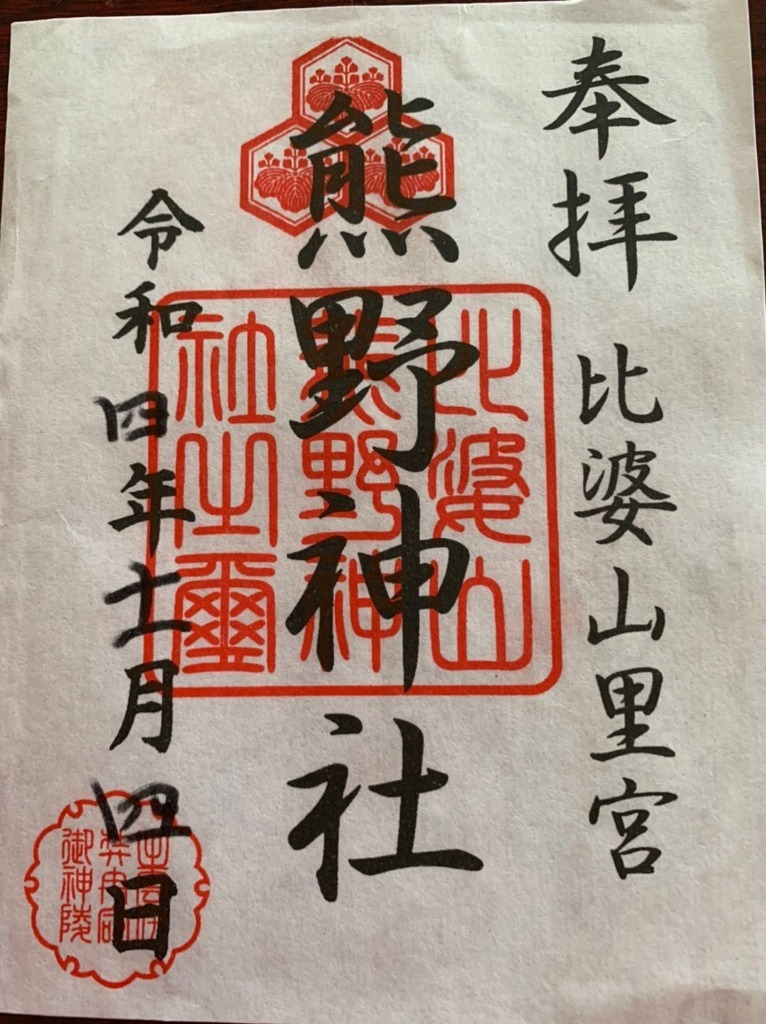 奉拝 比婆山里宮
熊野神社
令和四年十一月四日
比婆山
熊野神
社之璽
御神陵